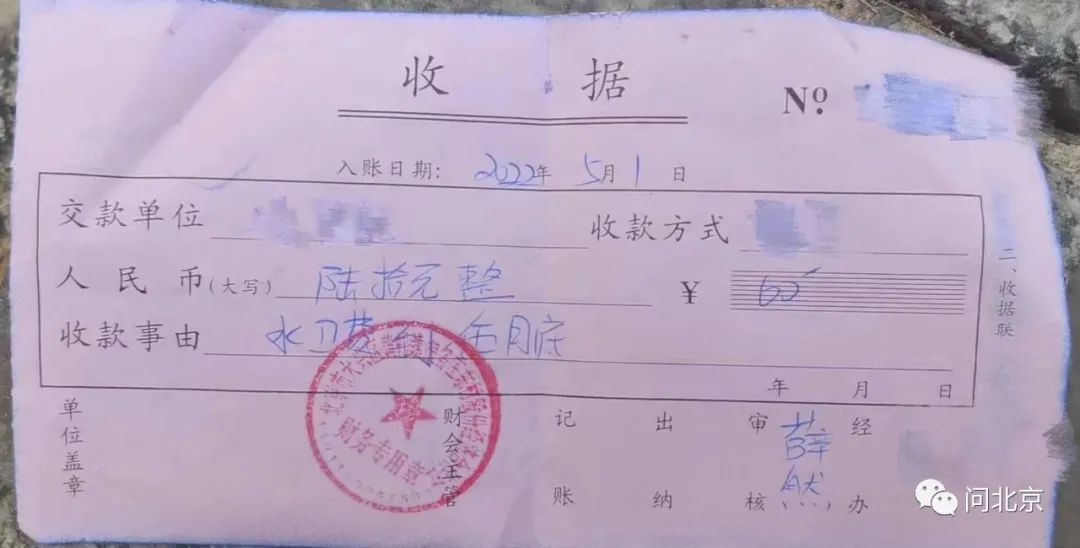 收 据
№
入账日期: 2022年 5月 1日
交款单位 收款方式
人民币(大写) 陆拾元整 ¥ 60
收款事由 水卫费 到 5月底
年 月 日
二、收据联
单位盖章 财会主管 记账 出纳 审核 薛然 经办
财务专用章
问北京